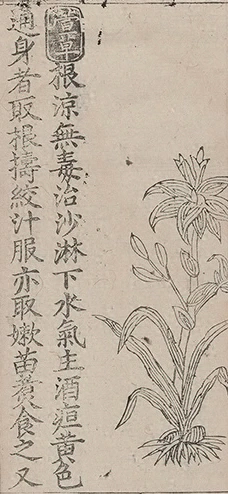 萱草根涼無毒治沙淋下水氣主酒疸黃色
通身者取根擣絞汁服亦取嫩苗煮食之又